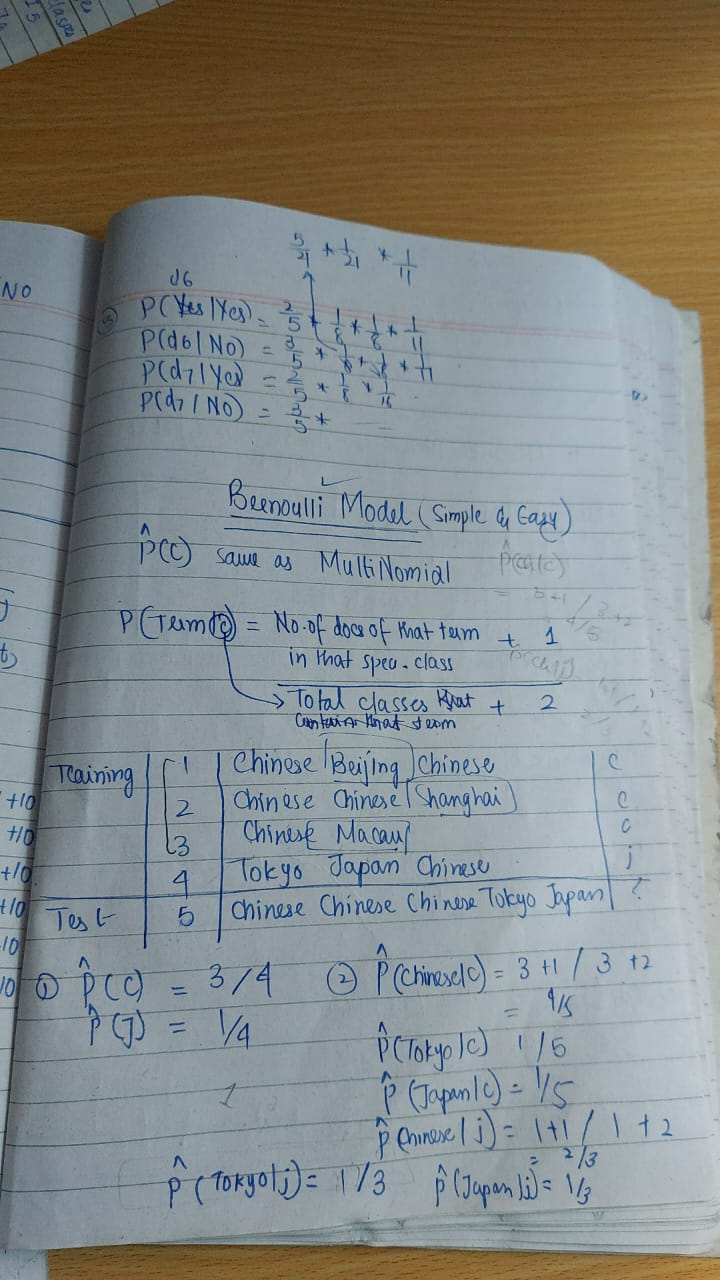 5/21 * 1/21 * 1/11
d6
③ P(Yes|Yes) = 2/5 * 1/8 * 1/8 * 1/11
P(d6|No) = 3/5 * 1/8 * 1/8 * 1/11
P(d7|Yes) = 2/5 * 1/8 * 1/16
P(d7|No) = 3/5 *
Beenoulli Model (Simple & Easy)
P̂(C) same as MultiNomial
P(Term|c) = No. of docs of that term + 1
in that spec. class
Total classes that + 2
contains that term
Training 1 Chinese Beijing Chinese C
2 Chinese Chinese Shanghai C
3 Chinese Macau C
4 Tokyo Japan Chinese j
Test 5 Chinese Chinese Chinese Tokyo Japan ?
① P̂(C) = 3/4 ② P̂(Chinese|C) = 3+1 / 3+2
P̂(J) = 1/4 = 4/5
P̂(Tokyo|C) 1/5
1 P̂(Japan|C) = 1/5
P̂(Chinese|j) = 1+1 / 1+2
= 2/3
P̂(Tokyo|j) = 1/3 P̂(Japan|j) = 1/3
NO
+10
+10
+10
+10
10
10